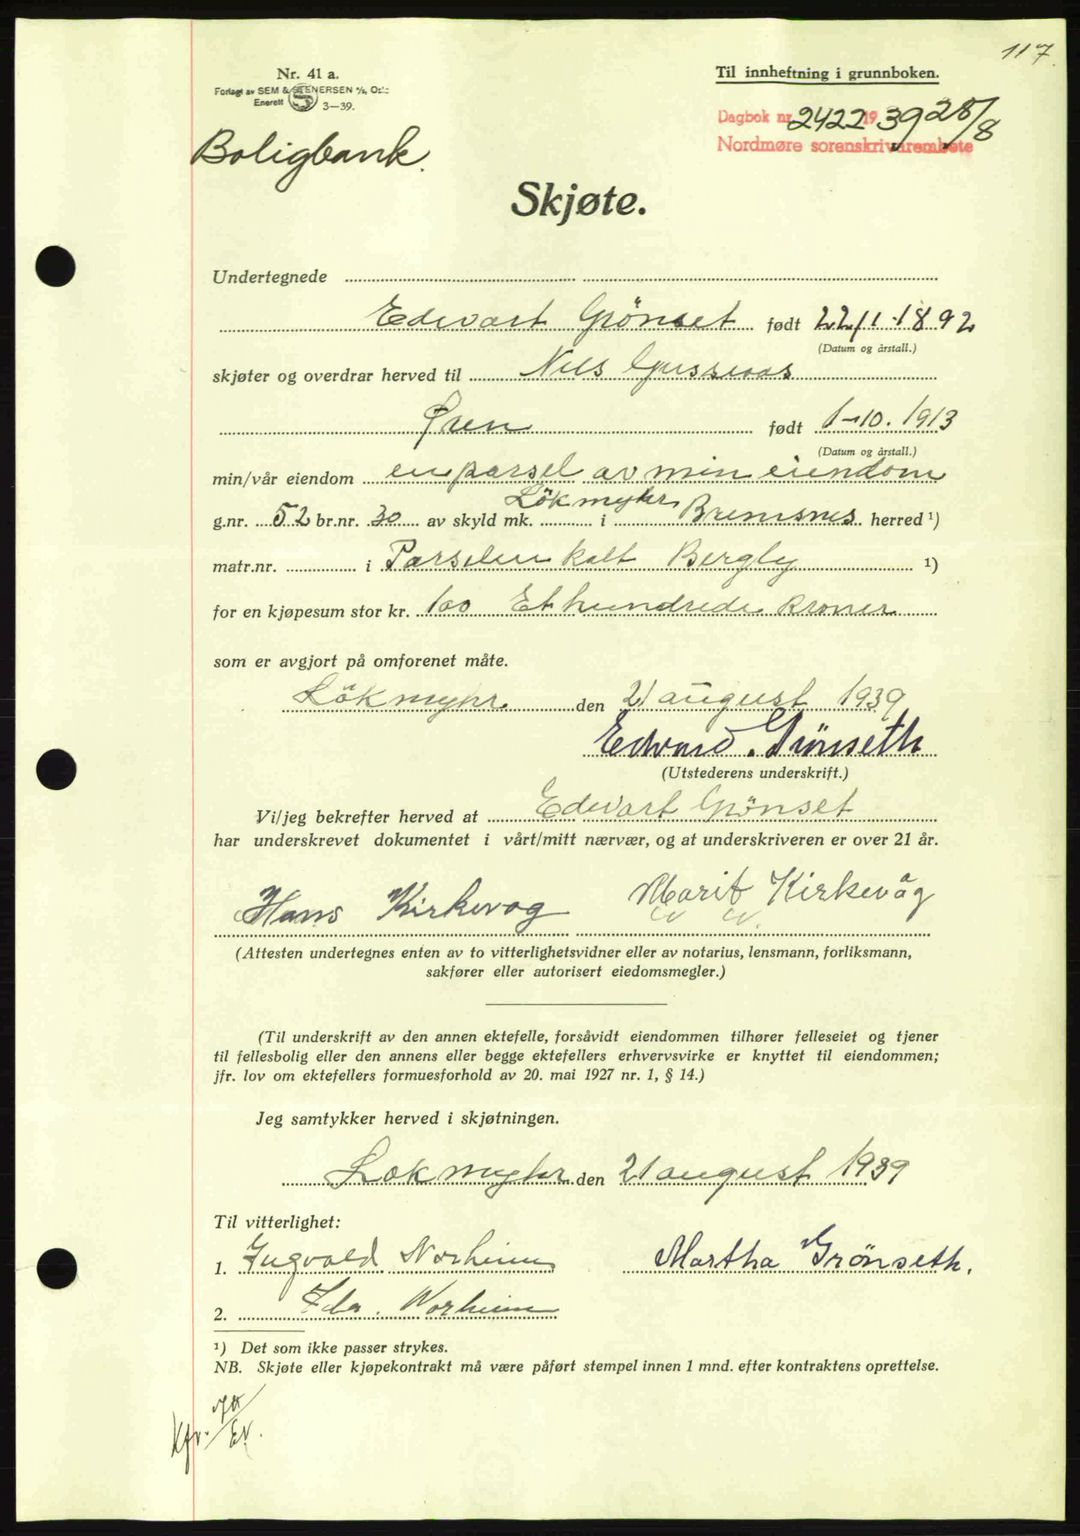 117
Nr. 41 a.
Til innheftning i grunnboken.
Forlagt av SEM & STENERSEN A/S, Oslo
Enerett 3—39.
Dagbok nr. 2422 1939 28/8
Nordmøre sorenskriverembete
Boligbank.
Skjøte.
Undertegnede
Edevart Grönset født 22/1-1892
(Datum og årstall.)
skjøter og overdrar herved til Nils
Øren født 1-10.1913
(Datum og årstall.)
min/vår eiendom en parsel av min eiendom
Lökmyhr
g.nr. 52 br.nr. 30 av skyld mk. i Bremsnes herred ¹)
matr.nr. i Parselen kalt Bergly ¹)
for en kjøpesum stor kr. 100 Et hundrede kroner
som er avgjort på omforenet måte.
Lökmyhr den 21 august 1939
Edvard. Grönseth
(Utstederens underskrift.)
Vi/jeg bekrefter herved at Edevart Grönset
har underskrevet dokumentet i vårt/mitt nærvær, og at underskriveren er over 21 år.
Hans Kirkevog Marit Kirkevåg
(Attesten undertegnes enten av to vitterlighetsvidner eller av notarius, lensmann, forliksmann,
sakfører eller autorisert eiedomsmegler.)
(Til underskrift av den annen ektefelle, forsåvidt eiendommen tilhører felleseiet og tjener
til fellesbolig eller den annens eller begge ektefellers erhvervsvirke er knyttet til eiendommen;
jfr. lov om ektefellers formuesforhold av 20. mai 1927 nr. 1, § 14.)
Jeg samtykker herved i skjøtningen.
Lokmyhr den 21 august 1939
Til vitterlighet:
1. Ingvald Norheim Martha Grönseth.
2. Ida. Norheim
¹) Det som ikke passer strykes.
NB. Skjøte eller kjøpekontrakt må være påført stempel innen 1 mnd. efter kontraktens oprettelse.